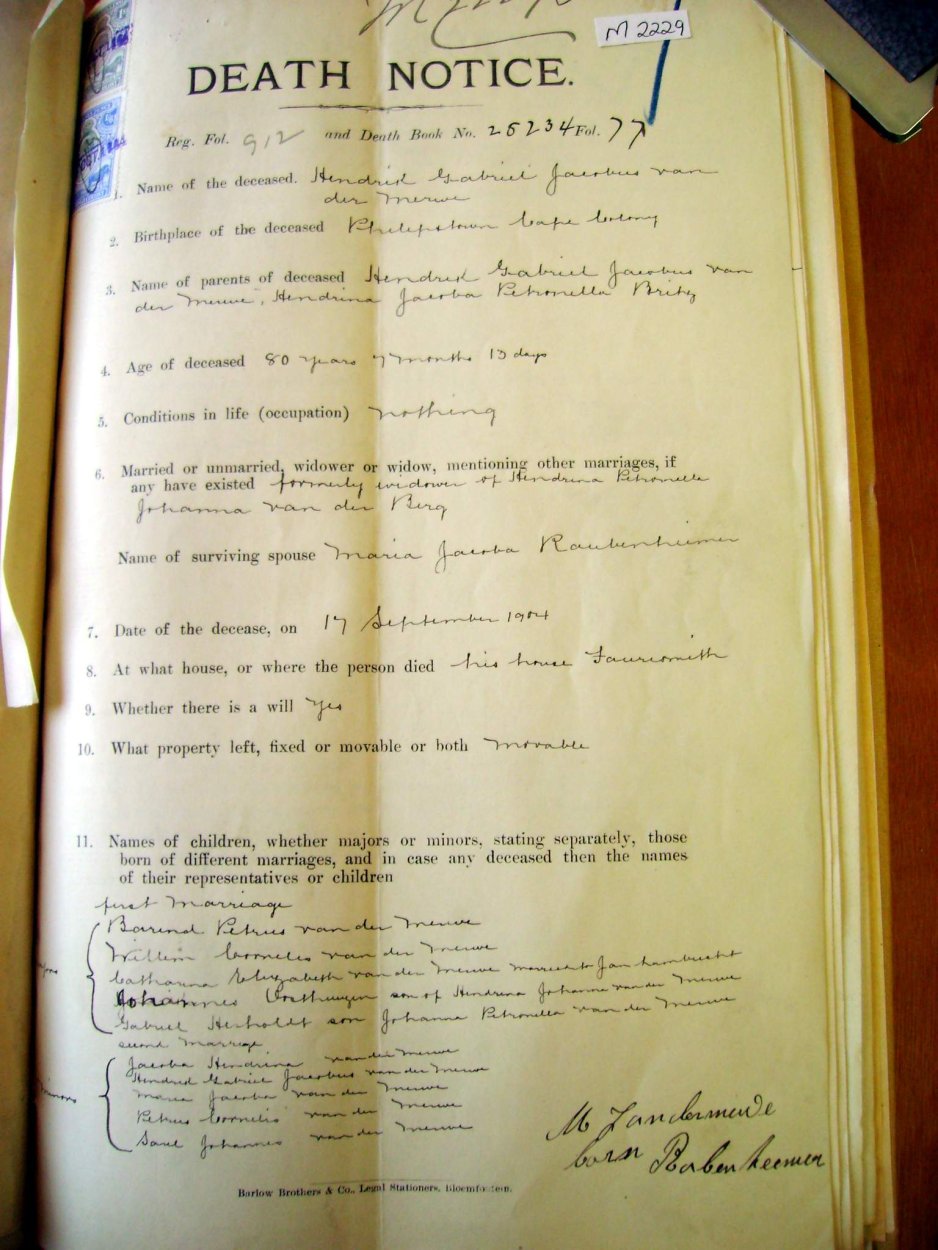 M 2229
DEATH NOTICE.
Reg. Fol. 912 and Death Book No. 25234 Fol. 77
1. Name of the deceased. Hendrik Gabriel Jacobus van
der Merwe
2. Birthplace of the deceased Philipstown Cape Colony
3. Name of parents of deceased Hendrik Gabriel Jacobus van
der Merwe, Hendrina Jacoba Petronella Britz
4. Age of deceased 80 years 7 months 13 days
5. Conditions in life (occupation) nothing
6. Married or unmarried, widower or widow, mentioning other marriages, if
any have existed formerly widower of Hendrina Petronella
Johanna van der Berg
Name of surviving spouse Maria Jacoba Raubenheimer
7. Date of the decease, on 17 September 1904
8. At what house, or where the person died his house Fauresmith
9. Whether there is a will Yes
10. What property left, fixed or movable or both movable
11. Names of children, whether majors or minors, stating separately, those
born of different marriages, and in case any deceased then the names
of their representatives or children
first Marriage
Barend Petrus van der Merwe
Willem Cornelis van der Merwe
Catharina Elizabeth van der Merwe married to Jan Lambrecht
Johannes Oosthuyzen son of Hendrina Johanna van der Merwe
Gabriel Herholdt son Johanna Petronella van der Merwe
second Marriage
Jacoba Hendrina van der Merwe
Hendrik Gabriel Jacobus van der Merwe
Maria Jacoba van der Merwe
Petrus Cornelis van der Merwe
Sarel Johannes van der Merwe
born
Barlow Brothers & Co., Legal Stationers, Bloemfontein.